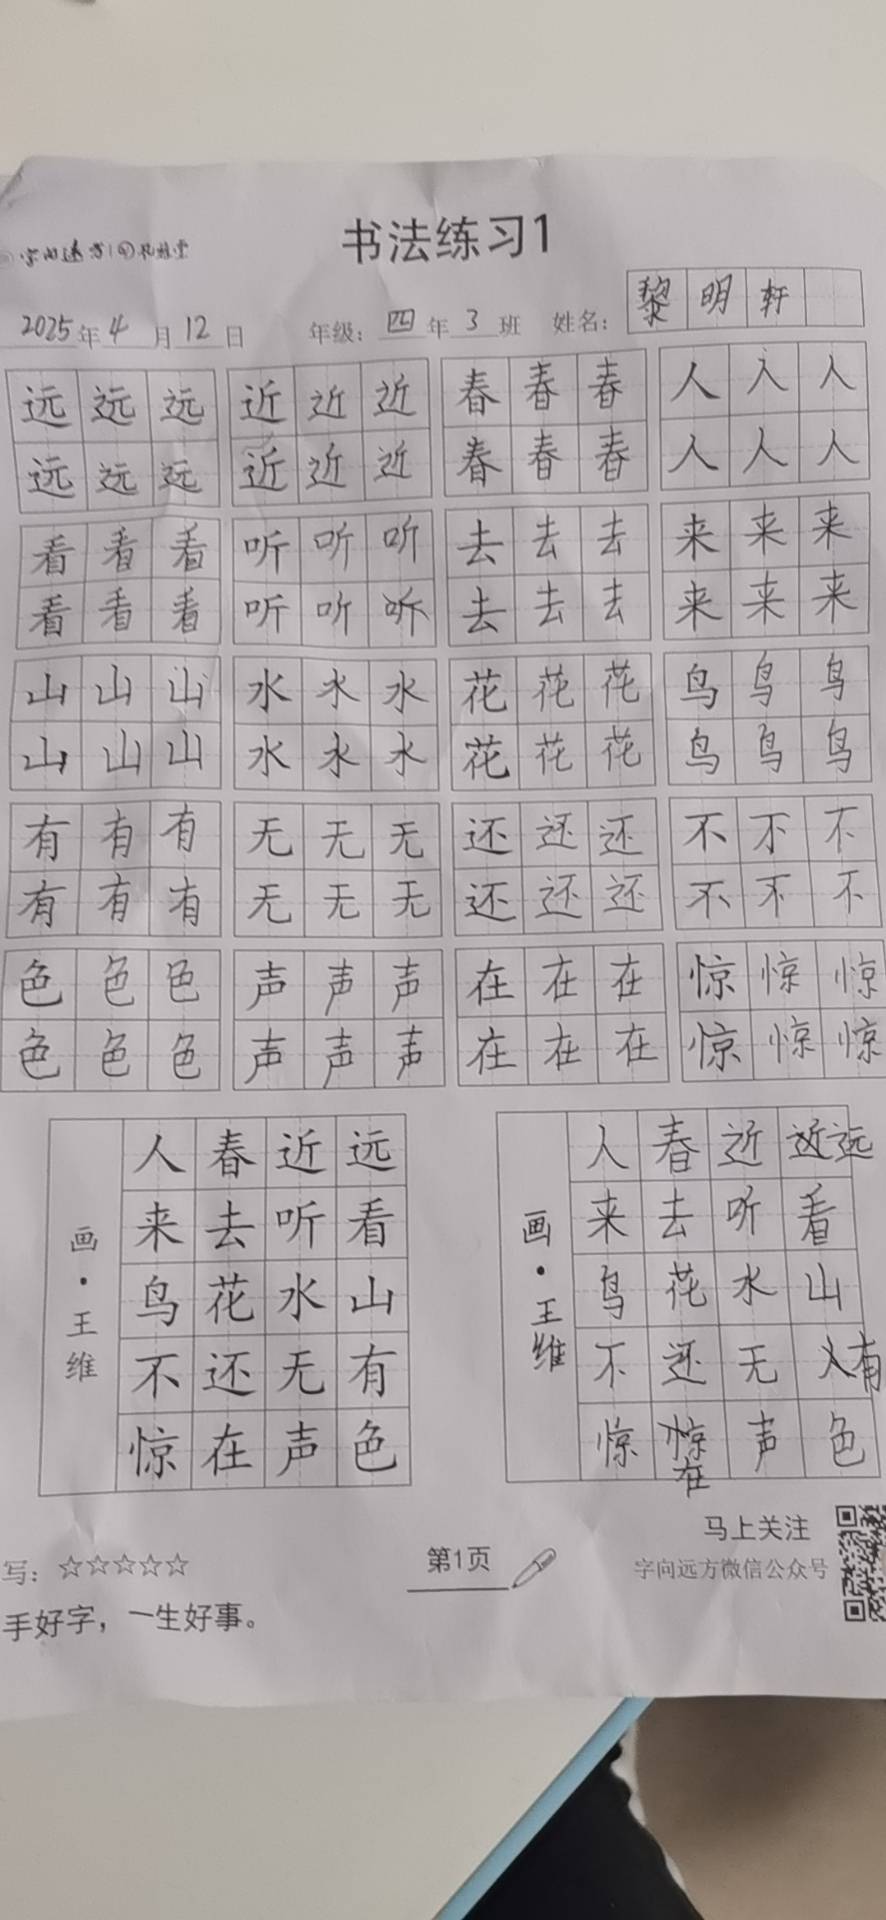 书法练习1
2025年4月12日 年级：四年3班 姓名：黎明轩
远远远 近近近 春春春 人人人
远远远 近近近 春春春 人人人
看看看 听听听 去去去 来来来
看看看 听听听 去去去 来来来
山山山 水水水 花花花 鸟鸟鸟
山山山 水水水 花花花 鸟鸟鸟
有有有 无无无 还还还 不不不
有有有 无无无 还还还 不不不
色色色 声声声 在在在 惊惊惊
色色色 声声声 在在在 惊惊惊
画·王维
远看山有色
近听水无声
春去花还在
人来鸟不惊
画·王维
远看山有色
近听水无声
春去花还在
人来鸟不惊
写：☆☆☆☆☆
手好字，一生好事。
第1页
马上关注
字向远方微信公众号